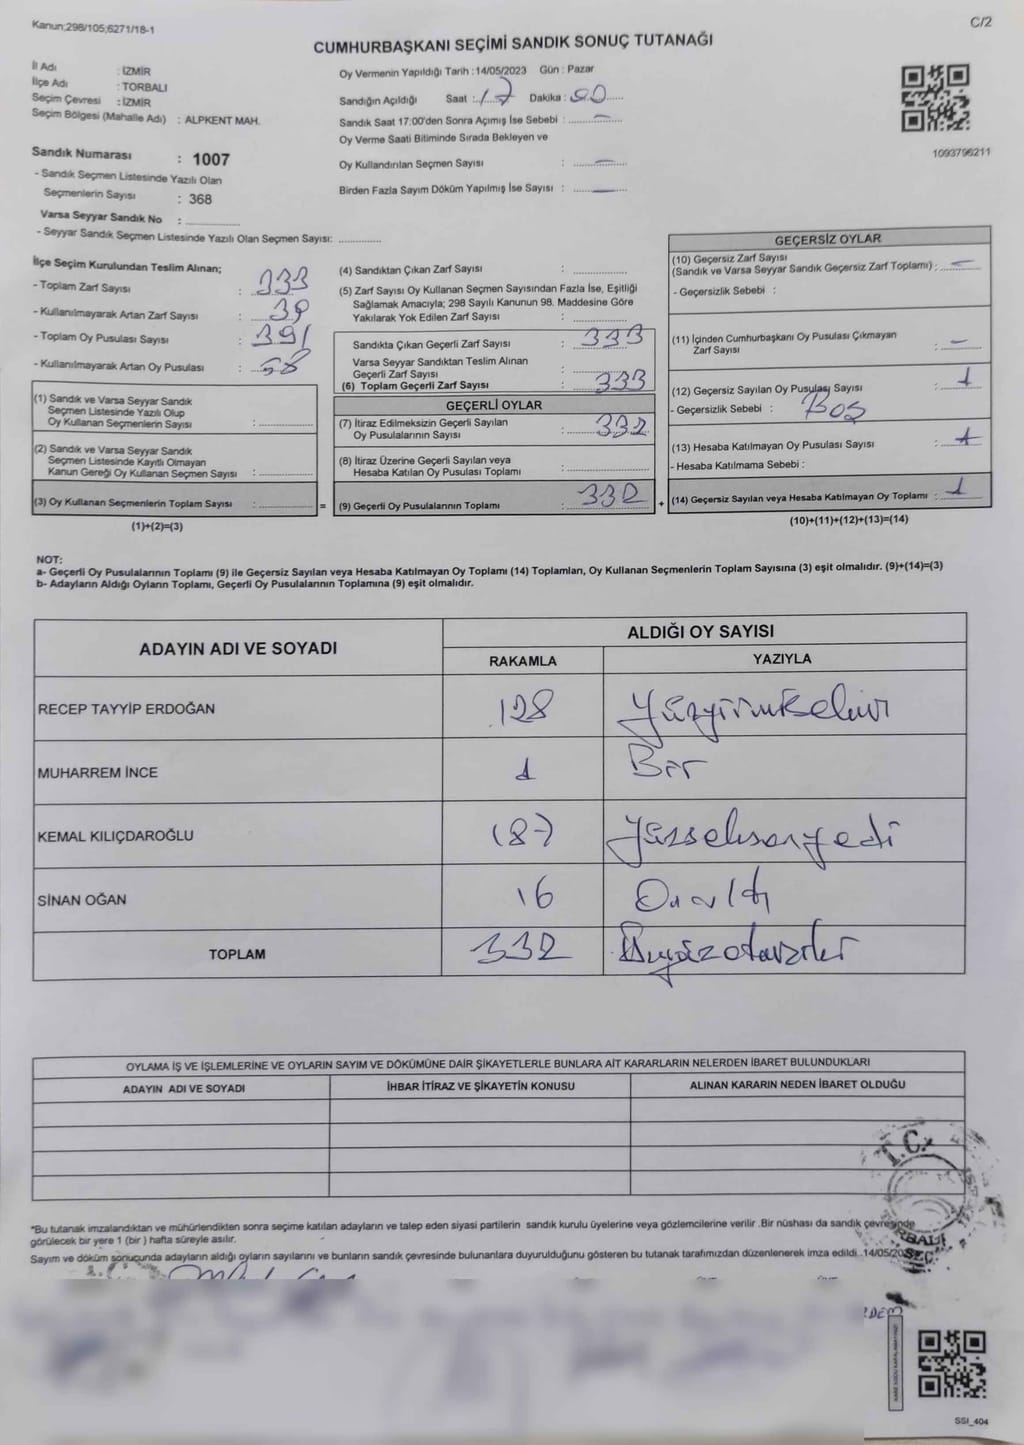 Kanun;298/105;6271/18-1
C/2
CUMHURBAŞKANI SEÇİMİ SANDIK SONUÇ TUTANAĞI
İl Adı : İZMİR
İlçe Adı : TORBALI
Seçim Çevresi : İZMİR
Seçim Bölgesi (Mahalle Adı) : ALPKENT MAH.
Sandık Numarası : 1007
- Sandık Seçmen Listesinde Yazılı Olan
Seçmenlerin Sayısı : 368
Varsa Seyyar Sandık No :
- Seyyar Sandık Seçmen Listesinde Yazılı Olan Seçmen Sayısı:
Oy Vermenin Yapıldığı Tarih :14/05/2023 Gün : Pazar
Sandığın Açıldığı Saat : 17 Dakika : 00
Sandık Saat 17:00'den Sonra Açımış İse Sebebi : —
Oy Verme Saati Bitiminde Sırada Bekleyen ve
Oy Kullandırılan Seçmen Sayısı : —
Birden Fazla Sayım Döküm Yapılmış İse Sayısı : —
1093796211
İlçe Seçim Kurulundan Teslim Alınan;
- Toplam Zarf Sayısı :
- Kullanılmayarak Artan Zarf Sayısı :
- Toplam Oy Pusulası Sayısı : 391
- Kullanılmayarak Artan Oy Pusulası : 58
(1) Sandık ve Varsa Seyyar Sandık
Seçmen Listesinde Yazılı Olup
Oy Kullanan Seçmenlerin Sayısı :
(2) Sandık ve Varsa Seyyar Sandık
Seçmen Listesinde Kayıtlı Olmayan
Kanun Gereği Oy Kullanan Seçmen Sayısı :
(3) Oy Kullanan Seçmenlerin Toplam Sayısı :
(1)+(2)=(3)
=
(4) Sandıktan Çıkan Zarf Sayısı :
(5) Zarf Sayısı Oy Kullanan Seçmen Sayısından Fazla İse, Eşitliği
Sağlamak Amacıyla; 298 Sayılı Kanunun 98. Maddesine Göre
Yakılarak Yok Edilen Zarf Sayısı :
Sandıkta Çıkan Geçerli Zarf Sayısı : 333
Varsa Seyyar Sandıktan Teslim Alınan
Geçerli Zarf Sayısı :
(6) Toplam Geçerli Zarf Sayısı : 333
GEÇERLİ OYLAR
(7) İtiraz Edilmeksizin Geçerli Sayılan
Oy Pusulalarının Sayısı : 332
(8) İtiraz Üzerine Geçerli Sayılan veya
Hesaba Katılan Oy Pusulası Toplamı :
(9) Geçerli Oy Pusulalarının Toplamı : 332
+
GEÇERSİZ OYLAR
(10) Geçersiz Zarf Sayısı
(Sandık ve Varsa Seyyar Sandık Geçersiz Zarf Toplamı) : —
- Geçersizlik Sebebi :
(11) İçinden Cumhurbaşkanı Oy Pusulası Çıkmayan
Zarf Sayısı : —
(12) Geçersiz Sayılan Oy Pusulası Sayısı : 1
- Geçersizlik Sebebi : Boş
(13) Hesaba Katılmayan Oy Pusulası Sayısı :
- Hesaba Katılmama Sebebi :
(14) Geçersiz Sayılan veya Hesaba Katılmayan Oy Toplamı : 1
(10)+(11)+(12)+(13)=(14)
NOT:
a- Geçerli Oy Pusulalarının Toplamı (9) ile Geçersiz Sayılan veya Hesaba Katılmayan Oy Toplamı (14) Toplamları, Oy Kullanan Seçmenlerin Toplam Sayısına (3) eşit olmalıdır. (9)+(14)=(3)
b- Adayların Aldığı Oyların Toplamı, Geçerli Oy Pusulalarının Toplamına (9) eşit olmalıdır.
ADAYIN ADI VE SOYADI
ALDIĞI OY SAYISI
RAKAMLA YAZIYLA
RECEP TAYYİP ERDOĞAN 128 Yüzyirmisekiz
MUHARREM İNCE 1 Bir
KEMAL KILIÇDAROĞLU 187 Yüzseksenyedi
SİNAN OĞAN 16 Onaltı
TOPLAM 332 Üçyüzotuziki
OYLAMA İŞ VE İŞLEMLERİNE VE OYLARIN SAYIM VE DÖKÜMÜNE DAİR ŞİKAYETLERLE BUNLARA AİT KARARLARIN NELERDEN İBARET BULUNDUKLARI
ADAYIN ADI VE SOYADI İHBAR İTİRAZ VE ŞİKAYETİN KONUSU ALINAN KARARIN NEDEN İBARET OLDUĞU
T.C.
*Bu tutanak imzalandıktan ve mühürlendikten sonra seçime katılan adayların ve talep eden siyasi partilerin sandık kurulu üyelerine veya gözlemcilerine verilir .Bir nüshası da sandık çevresinde
görülecek bir yere 1 (bir ) hafta süreyle asılır.
Sayım ve döküm sonucunda adayların aldığı oyların sayılarını ve bunların sandık çevresinde bulunanlara duyurulduğunu gösteren bu tutanak tarafımızdan düzenlenerek imza edildi. 14/05/20
SSI_404